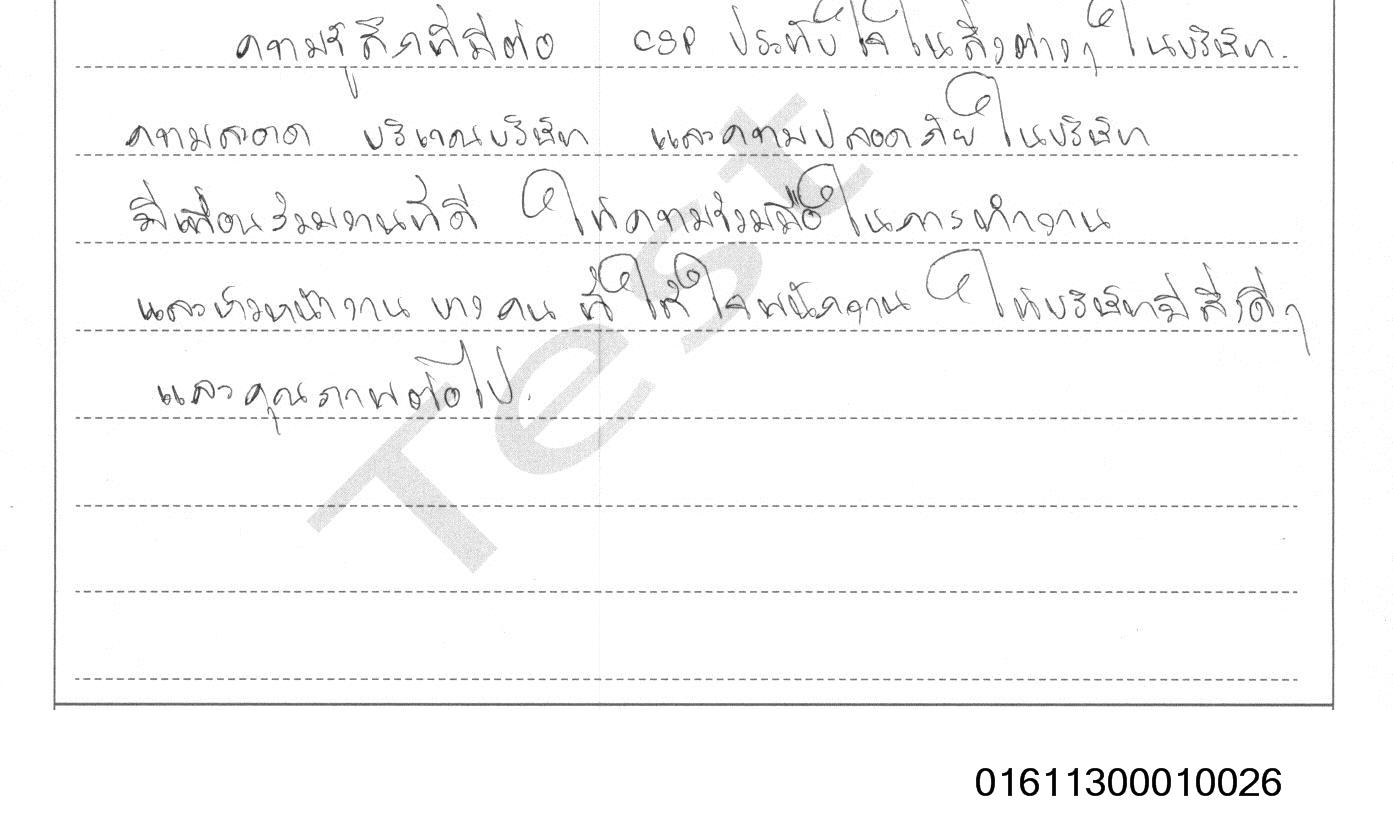 ความรู้สึกที่มีต่อ CSP ประทับใจในสิ่งต่างๆ ในบริษัท.
ความสะอาด บริเวณบริษัท และความปลอดภัยในบริษัท
มีเพื่อนร่วมงานที่ดี ให้ความร่วมมือในการทำงาน
และหัวหน้างาน บางคน ที่ใส่ใจพนักงาน ให้บริษัทมีสิ่งดีๆ
และคุณภาพต่อไป.
Test
01611300010026